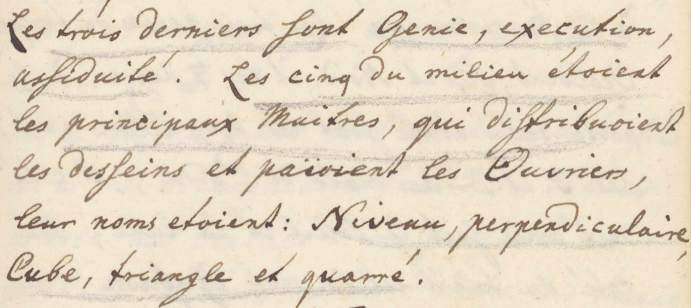 Les trois derniers sont Genie, execution,
assiduité. Les cinq du milieu étoient
les principaux Maitres, qui distribuoient
les desseins et paioient les Ouvriers,
leur noms etoient: Niveau, perpendiculaire,
Cube, triangle et quarré.